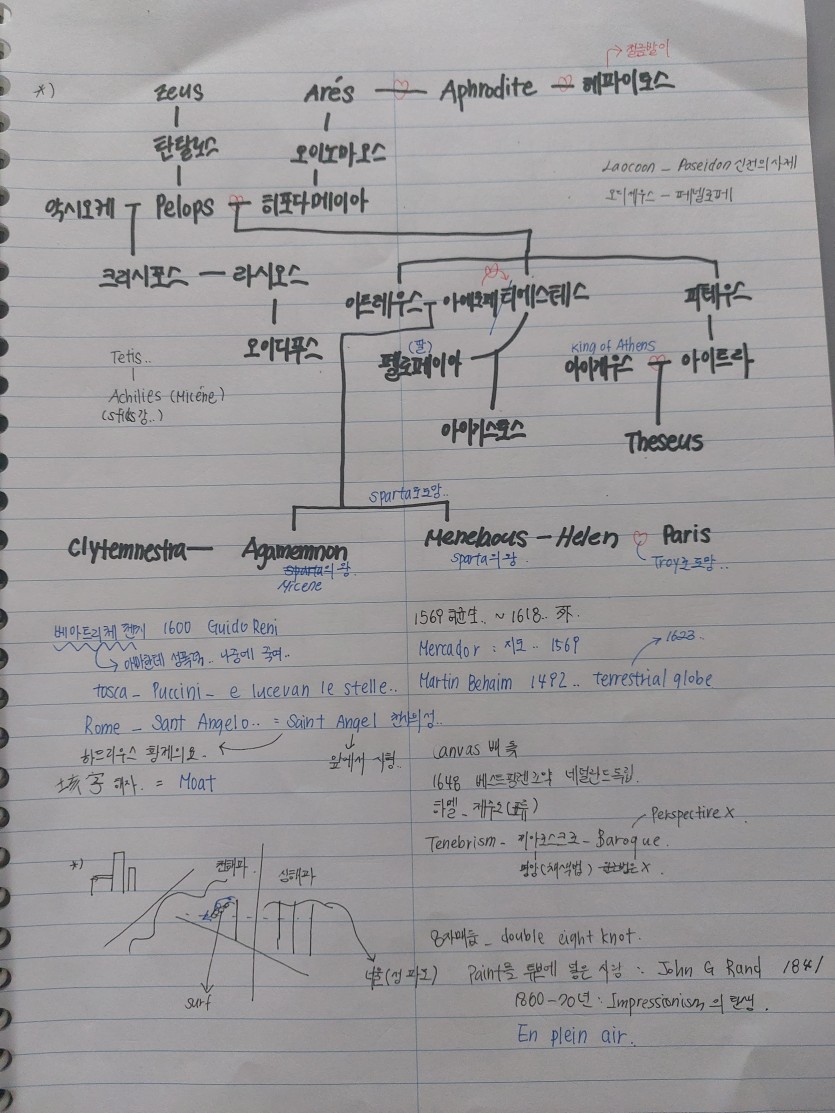 *) Zeus Arés Aphrodite 헤파이토스
탄탈로스 오이노마오스
Laocoon - Poseidon 신전의 사제
악시오케 Pelops 히포다메이아
오디세우스 - 페넬로페
크리시포스 - 라시오스
아트레우스 아에로페 티에스테스 피테우스
오이디푸스
(딸)
펠로페이아
King of Athens
아이게우스 아이트라
Tetis..
Achilies (Micéne)
아이기스토스
Theseus
Sparta로 도망..
Clytemnestra - Agamemnon Menelaous - Helen Paris
Sparta의 왕.
Micene
Sparta의 왕.
Troy로 도망..
베아트리체 첸치 1600 Guido Reni
1569 허균生.. ~ 1618..
아빠한테 성폭력.. 나중에 죽여..
Mercador : 지도.. 1569
1623..
tosca - Puccini - e lucevan le stelle..
Martin Behaim 1492.. terrestrial globe
Rome - Sant Angelo.. = Saint Angel 천사의 성..
하드리우스 황제의 묘.
앞에서 시형..
Canvas 배 돛
垓字 해자. = Moat
1648 베스트팔렌 조약 네덜란드 독립.
Perspective X.
Tenebrism - 키아로스쿠로 - Baroque.
명암(채색법) X.
*) 전해파 심해파
8자매듭 - double eight knot.
너울(성파도)
surf
Paint를 튜브에 넣은 사람 : John G Rand 1841
1860-70년 : Impressionism의 탄생.
En plein air.